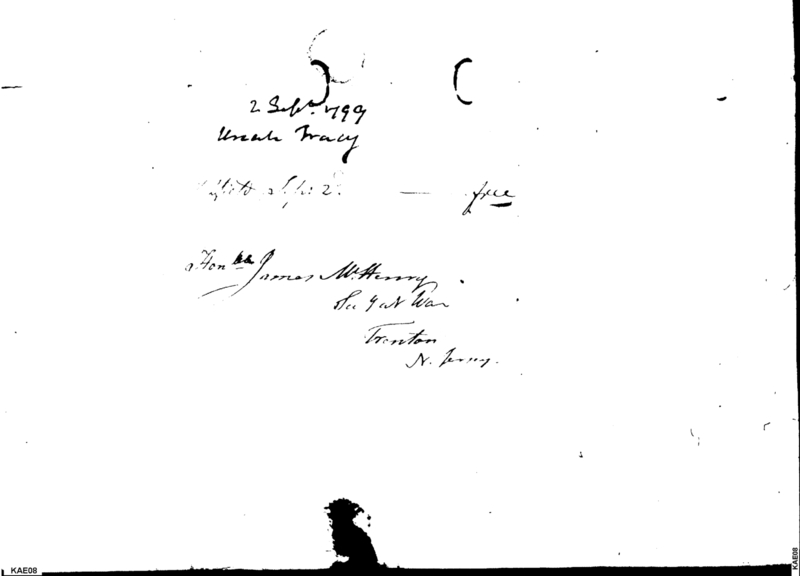 2 Sept. 1799
Uriah Tracy
Sept. 2. — free
Honble James McHenry
Sec'y at War
Trenton
N. Jersey.
KAE08
KAE08